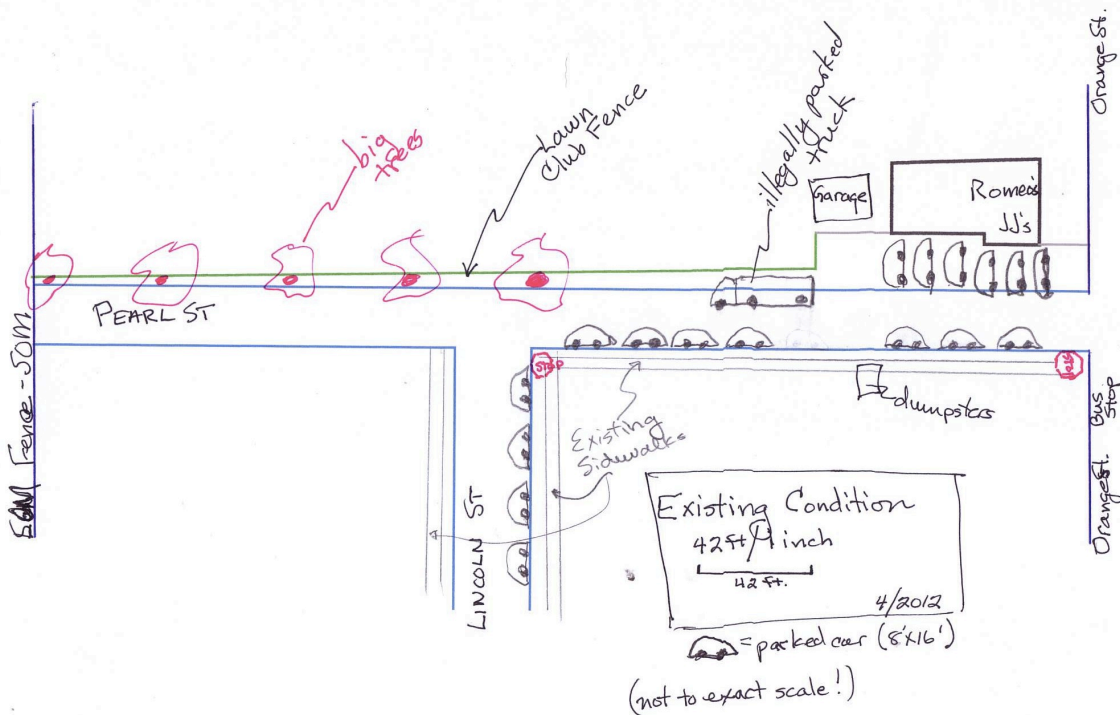 Orange St.
illegally parked
truck
Lawn
Club Fence
big
trees
Garage
Romeo's
JJ's
PEARL ST
Fence - SOM
STOP
STOP
dumpsters
Bus
Stop
Orange St.
Existing
Sidewalks
LINCOLN ST
Existing Condition
42ft/1 inch
42 ft.
4/2012
= parked car (8'x16')
(not to exact scale!)